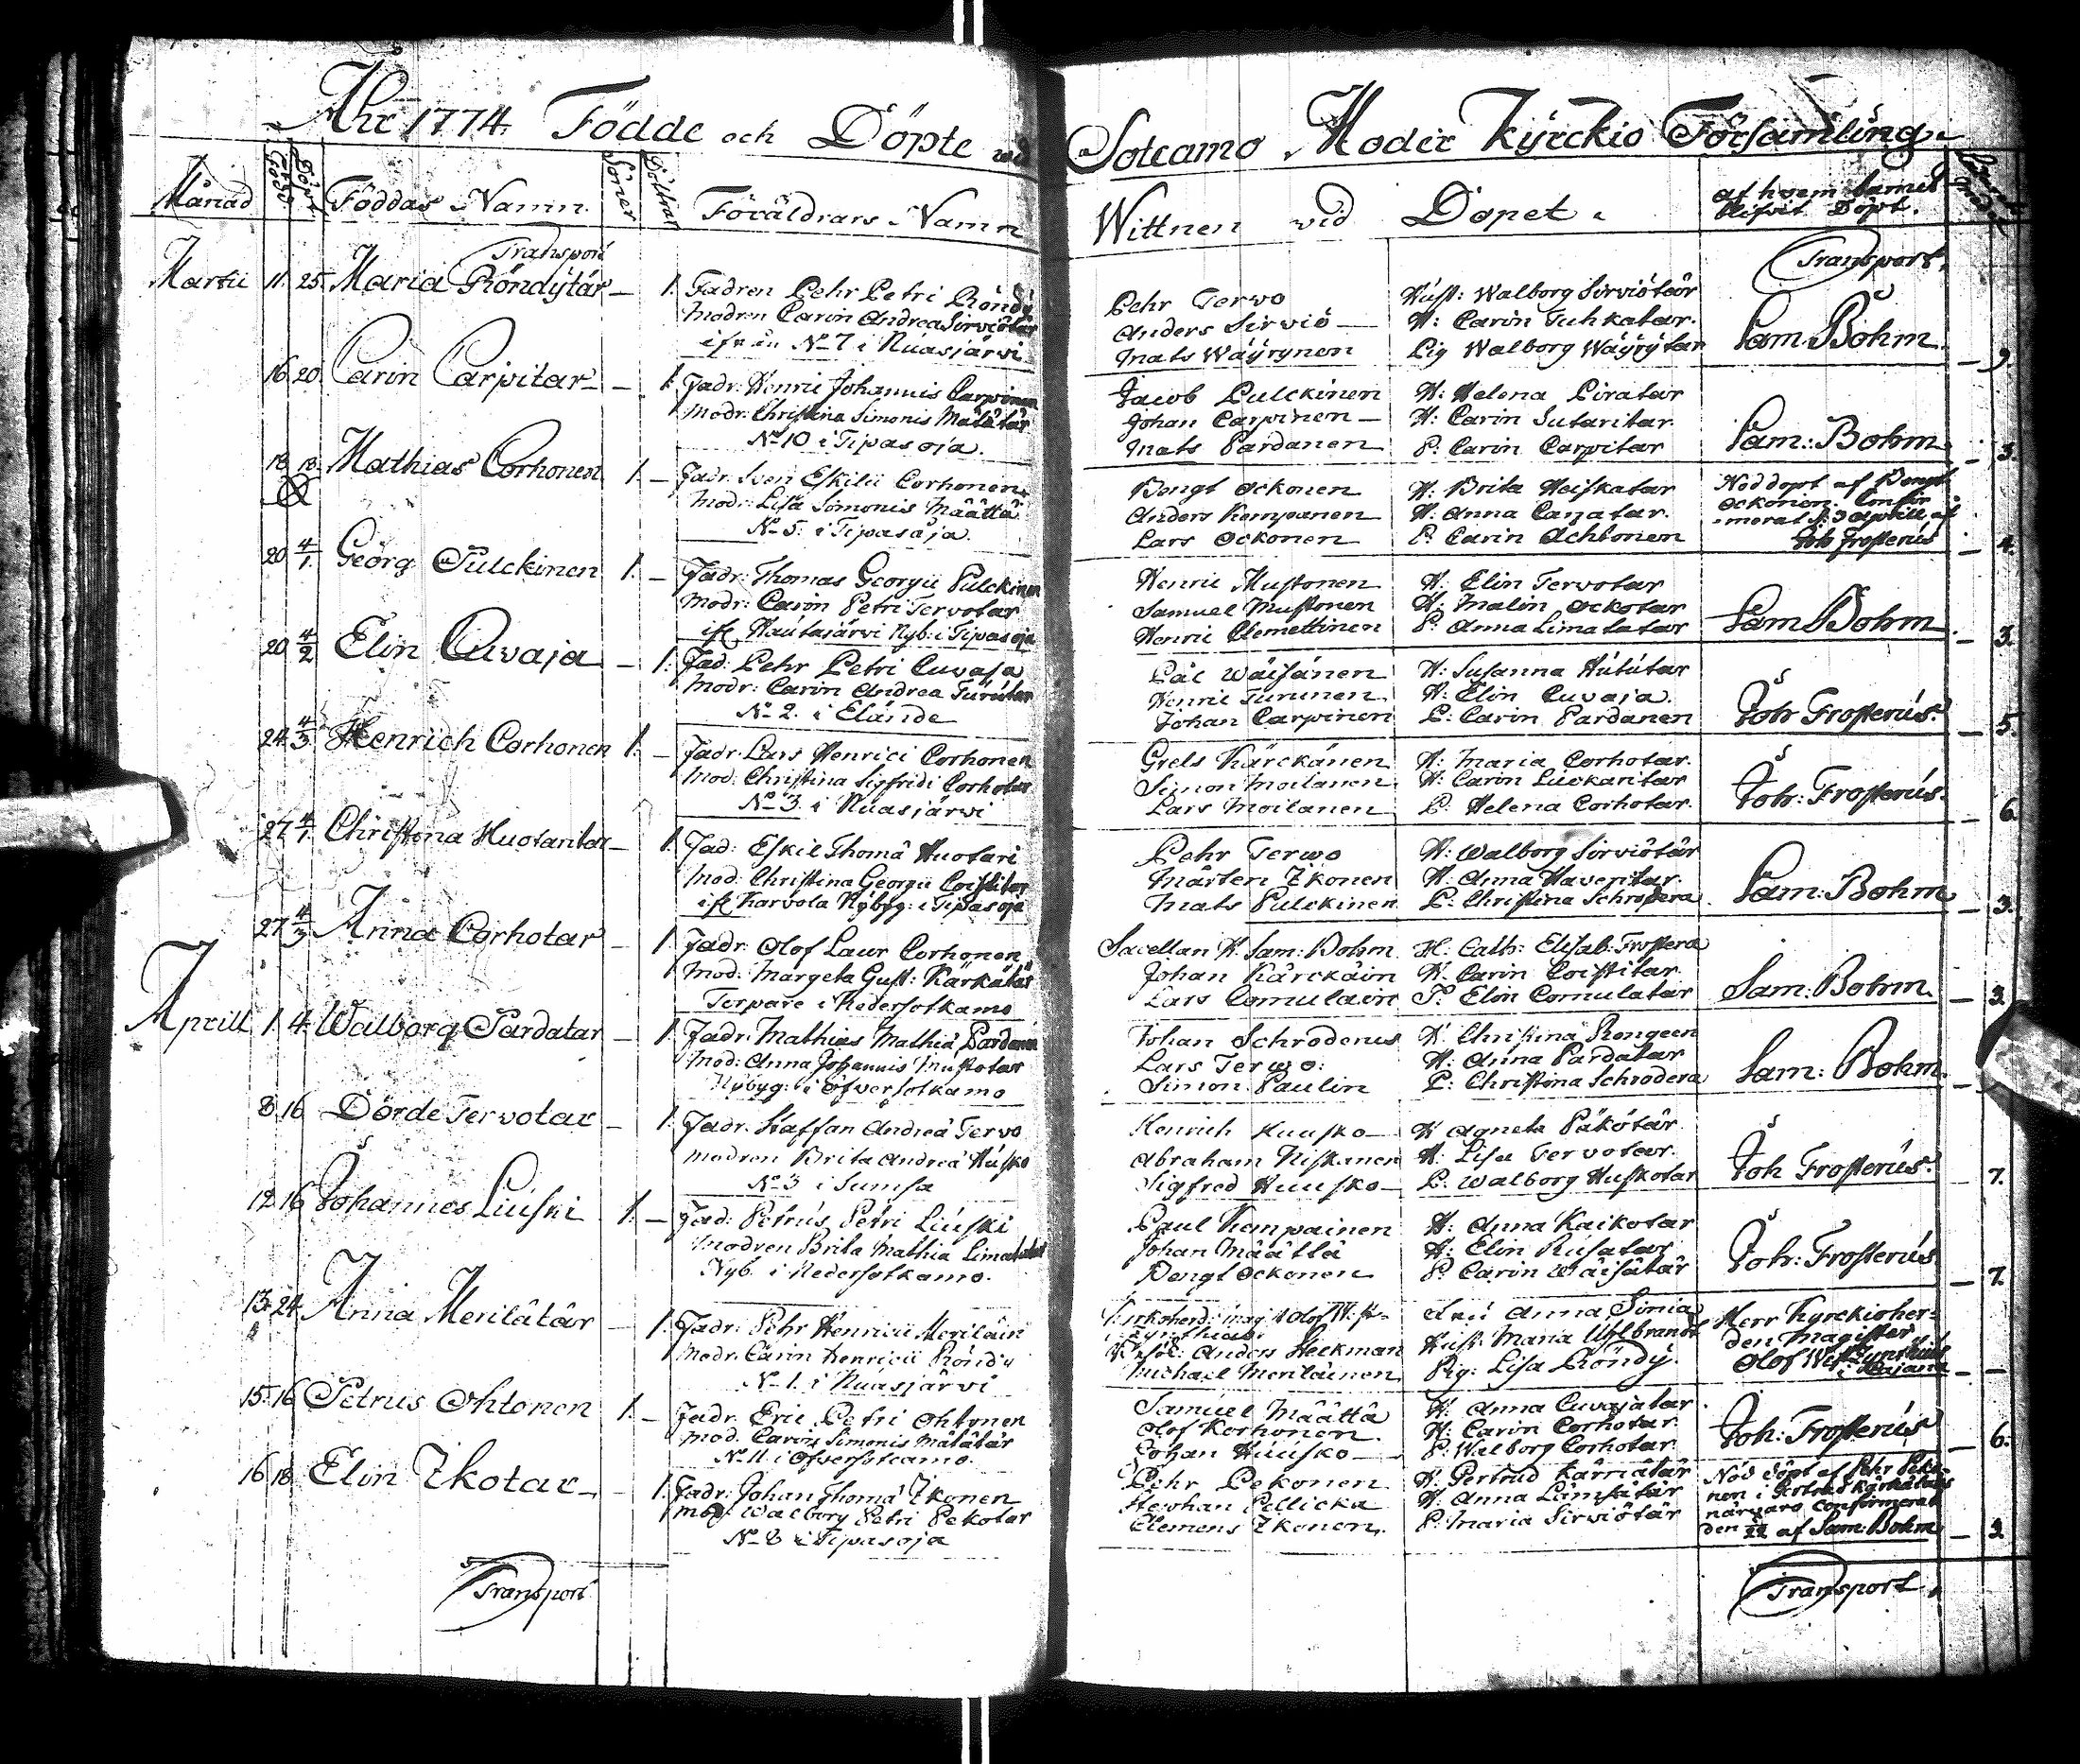 Åhr 1774. Födde och Döpte wid
Månad Född Döpt Föddas Namn. Söner Döttrar Föräldrars Namn
Transport
Martii 11. 25. Maria Röndÿtär — 1. Fadren Pehr Petri Röndÿ
modren Carin Andreæ Sirviötär
ifrån No 7 i Nuasjärvi
16 20 Carin Carpitar — 1. Fadr: Henric Johannis Carpinen
Modr: Christina Simonis Määtätär
No 10 i Tipasoja.
18 18 Mathias Corhonen 1. — Fadr: Sven Eskilii Corhonen
Modr: Lisa Simonis Määttä
No 5. i Tipasoja.
20 4/1 Georg Pulckinen 1. — Fadr: Thomas Georgii Pulckinen
Modr: Carin Petri Tervotar
ifr Hautajärvi Nyb: i Tipasoja
20 4/2 Elin Cuvaja — 1. Fad: Pehr Petri Cuvaja
Modr: Carin Andreæ Turutar
No 2. i Elände
24 4/3 Henrich Corhonen 1. — Fadr: Lars Henrici Corhonen
Mod: Christina Sigfridi Corhotar
No 3 i Nuasjärvi
27 4/1 Christina Huotaritar — 1. Fad: Eskil Thomä Huotari
Mod: Christina Georgii Coistitar
ifr Karvola Nÿbyg: i Tipasoja
27 4/3 Anna Corhotar — 1. Fadr: Olof Laur Corhonen
Mod: Margeta Gust: Kärkätär
Torpare i Nedersotkamo
Aprill 1. 4. Walborg Pardatar — 1. Fadr: Mathias Mathiä Pardanen
Mod: Anna Johannis Mustotar
Nÿbyg: i Öfversotkamo
8 16 Dörde Tervotar — 1. Fadr: Staffan Andreä Tervo
modren Brita Andreä Husko
No 3 i Sumsa
12 16 Johannes Liuski 1. — Fad: Petrus Petri Liuski
Modren Brita Mathiä Limatatar
Nyb. i Nedersotkamo.
13. 24. Anna Merilätär — 1. Fadr: Pehr Henricii Meriläin
Modr: Carin Henricii Röndy
No 1. i Nuasjärvi
15. 16 Petrus Ohtonen 1. — Fadr: Eric Petri Ohtonen
Mod: Carin Simonis Mätätär
No 11 i Öfversotcamo.
16 18. Elin Ikotar — 1. Fadr: Johan Thomä Ikonen
mod: Walborg Petri Pekotar
No 8 i Tipasoja
Transport
Sotcamo Moder Kÿrckio Församling.
Wittnen vid Dopet. af hvem barnet
blifvit Döpt.
Transport.
Pehr Terwo Hust: Walborg Sirviötär
Anders Sirviö — H: Carin Tuhkatar. Sam: Bohm. — 9.
Mats Wäÿrynen Pig Walborg Wäÿrÿtär
Jacob Pulckinen H: Helena Piratar
Johan Carpinen — H: Carin Sutaritar
Mats Pardanen P: Carin Carpitar Sam: Bohm. — 3.
Bengt Ockonen H: Brita Heiskatar Nöddopt af Bengt
Anders Kempanen H: Anna Canatar. Ockonen Confir
Lars Ockonen P: Carin Achtonen -merat d: 3 aprill af
Joh Frosterus — 4.
Henric Mustonen H: Elin Tervotar
Samuel Mustonen H: Malin Ockotar
Henric Clemettinen P: Anna Limatatar Sam Bohm. — 3.
Pål Wäisänen H: Susanna Hütútar
Henric Turunen H: Elin Cuvaja.
Johan Carpinen P: Carin Pardanen Joh Frosterus. — 5.
Grels Kärckänen H: Maria Corhotar.
Simon Moilanen H: Carin Luckaritar
Lars Moilanen P: Helena Corhotar. Joh: Frosterus. — 6.
Pehr Terwo H: Walborg Sirviötär
Mårten Ikonen H: Anna Haveritar.
Mats Pulckinen P: Christina Schrodera Sam: Bohm — 3.
Sacellan H. Sam: Bohm H: Cath: Elisab: Frostera
Johan Kärckäin H. Carin Coistitar.
Lars Comulain P: Elin Comulatar Sam: Bohm. — 3.
Johan Schroderus H. Christina Rongeen
Lars Terwo. H: Anna Pardatar
Simon Paulin P: Christina Schrodera Sam: Bohm. —
Henrich Huusko — H Agneta Päkötär
Abraham Niskanen H: Lisa Tervotar.
Sigfred Huusko — P. Walborg Huskotar Joh Frosterus. — 7.
Paul Kempainen H: Anna Kaikotar
Johan Määttä H: Elin Rusatar
Bengt Ockonen P: Carin Wäisätär Joh: Frosterus — 7.
Kirkoherd: Mag Olof Anna Sinia Herr Kyrckioher-
Anders Heckman Hust: Maria Uhlbrandt den Magister
Michael Meriläinen Pig: Lisa Röndÿ. Olof
i Cajana — —
Samuel Määttä H: Anna Cuvajatar
Olof Korhonen. H: Carin Corhotar
Johan Huusko — P: Walborg Corhotar Joh: Frosterus — 6.
Pehr Pekonen H: Gertrud Kärriätär Nöd döpt af Pehr Peko-
Stephan Pellicka H: Anna Lämsätär nen i Gertrud Kärhätärs
Clemens Ikonen. P: Maria Sirviötär närvaro confirmerat
den 22 af Sam: Bohm — 3.
Transport.